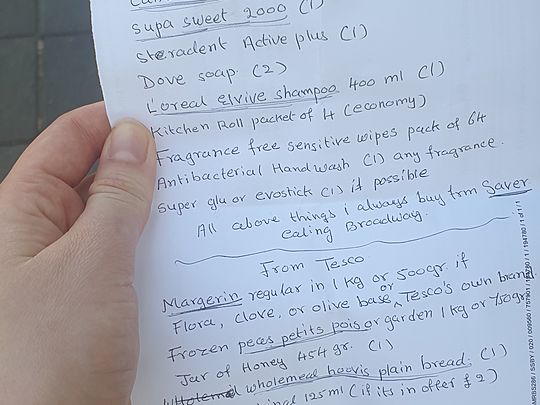 supa sweet 2000 (1)
steradent Active plus (1)
Dove soap. (2)
L'oreal elvive shampoo 400 ml (1)
Kitchen Roll packet of 4 (economy)
Fragrance free sensitive wipes pack of 64
Antibacterial Handwash (1) any fragrance.
super glu or evostick (1) if possible
All above things i always buy frm Saver
Ealing Broadway.
From Tesco
Margerin regular in 1 kg or 500gr if
Flora, clove, or olive base or Tesco's own brand
Frozen peas petits pois or garden 1 kg or 750gr
Jar of Honey 454 gr. (1)
wholemeal hovis plain bread. (1)
125 ml (if its in offer £2)
/ SSBY / 020 / 009560 / 1 / 194780 / 1 of 1 / 1